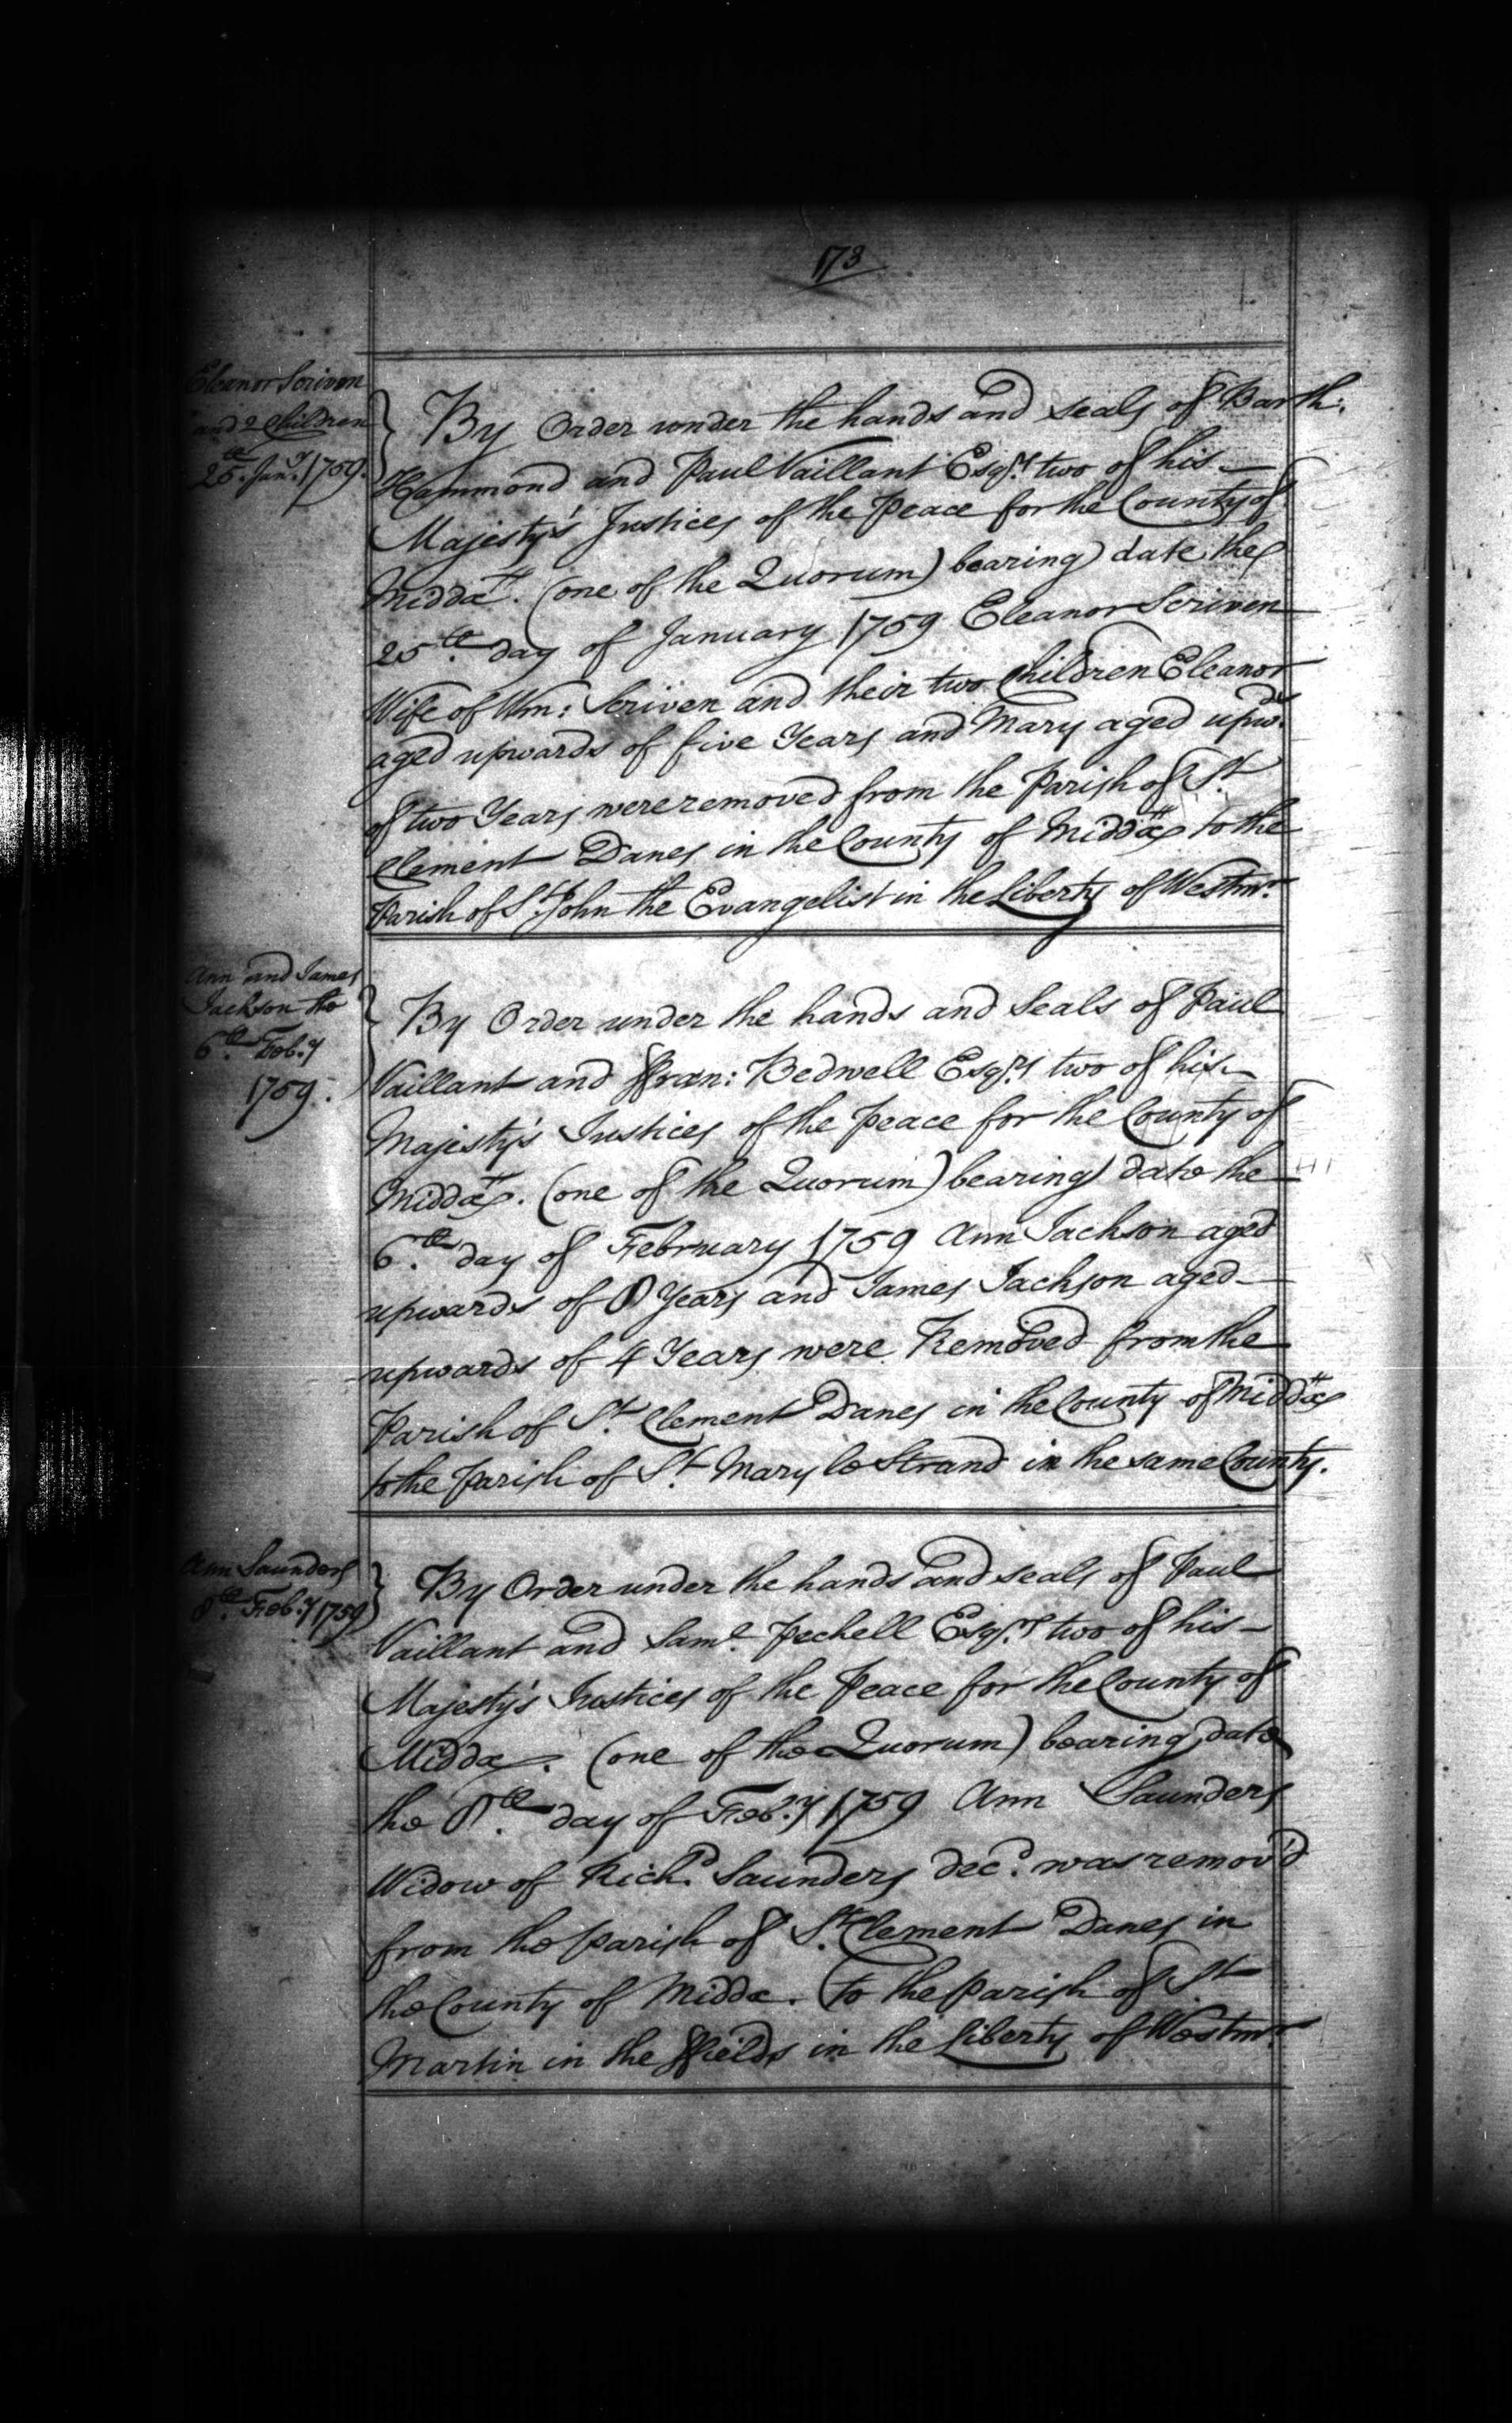 173
Eleanor Scriven
and 2 Children
25th. Jany. 1759.
By Order under the hands and seals of Barth:
Hammond and Paul Vaillant Esqrs. two of his
Majesty's Justices of the Peace for the County of
Middx. (one of the Quorum) bearing date the
25th. day of January 1759 Eleanor Scriven
Wife of Wm: Scriven and their two Children Eleanor
aged upwards of five Years and Mary aged upwds.
of two Years were removed from the Parish of St.
Clement Danes in the County of Middx to the
Parish of St. John the Evangelist in the Liberty of Westmr.
Ann and James
Jackson the
6th. Feb.y
1759.
By Order under the hands and Seals of Paul
Vaillant and ffran: Bedwell Esqrs. two of his
Majesty's Justices of the Peace for the County of
Middx. (one of the Quorum) bearing date the
6th. day of February 1759 Ann Jackson aged
upwards of 8 Years and James Jackson aged
upwards of 4 Years were Removed from the
Parish of St. Clement Danes in the County of Middx
to the Parish of St. Mary le Strand in the same County.
Ann Saunders
8th. Feb.y 1759
By Order under the hands and seals of Paul
Vaillant and Saml. Pechell Esqrs. two of his
Majesty's Justices of the Peace for the County of
Middx. (one of the Quorum) bearing date
the 8th. day of Feb.y 1759 Ann Saunders
Widow of Richd. Saunders decd. was remov'd
from the Parish of St. Clement Danes in
the County of Middx. to the Parish of St.
Martin in the ffields in the Liberty of Westmr.